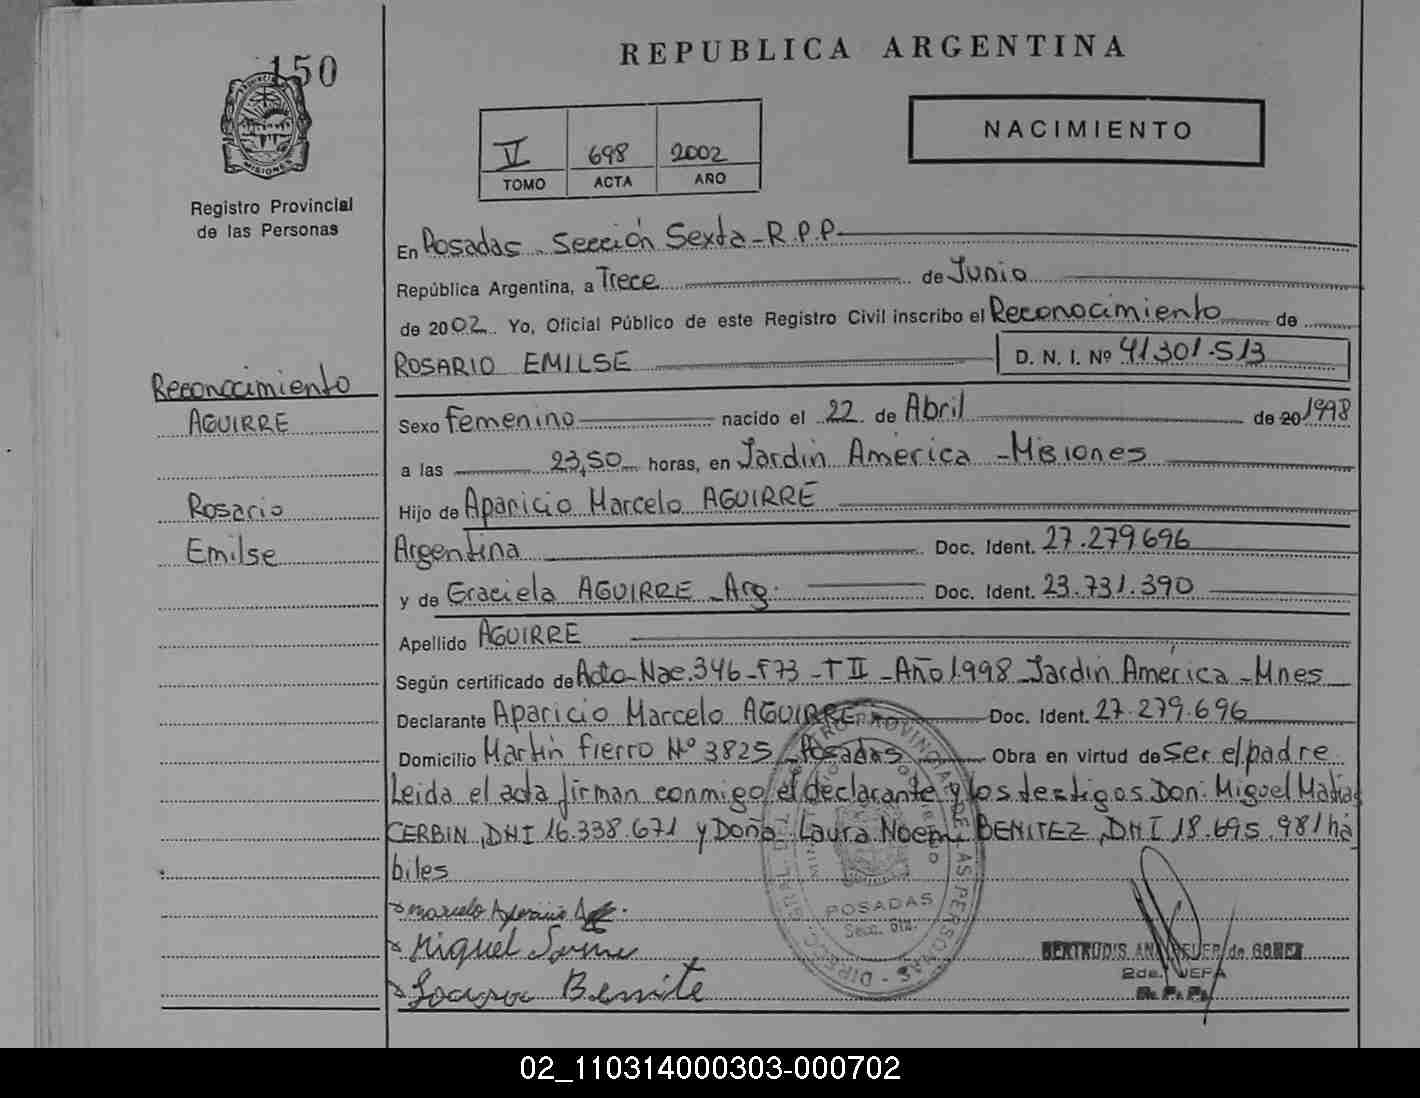 REPUBLICA ARGENTINA
150
PROVINCIA
MISIONES
Registro Provincial
de las Personas
NACIMIENTO
V 698 2002
TOMO ACTA AÑO
En Posadas - Sección Sexta - R.P.P.
República Argentina, a Trece de Junio
de 2002 Yo, Oficial Público de este Registro Civil inscribo el Reconocimiento de
ROSARIO EMILSE D. N. I. Nº 41301.513
Reconocimiento
AGUIRRE
Rosario
Emilse
Sexo Femenino nacido el 22 de Abril de 20 1998
a las 23,50 horas, en Jardín América - Misiones
Hijo de Aparicio Marcelo AGUIRRE
Argentina Doc. Ident. 27.279696
y de Graciela AGUIRRE - Arg. Doc. Ident. 23.731.390
Apellido AGUIRRE
Según certificado de Acta Nac. 346 - F73 - T II - Año 1.998 - Jardín América - Mnes
Declarante Aparicio Marcelo AGUIRRE Doc. Ident. 27.279.696
Domicilio Martín Fierro Nº 3825 - Posadas Obra en virtud de Ser el padre
Leida el acta firman conmigo el declarante y los testigos Don: Miguel Matias
CERBIN, DNI 16.338.671 y Doña Laura Noemi BENITEZ, DNI 18.695.981 há
biles
POSADAS
Marcelo Aparicio
Miguel
Benite
GERTRUDIS de GOMEZ
2da. JEFA
R. P. P.
02_110314000303-000702